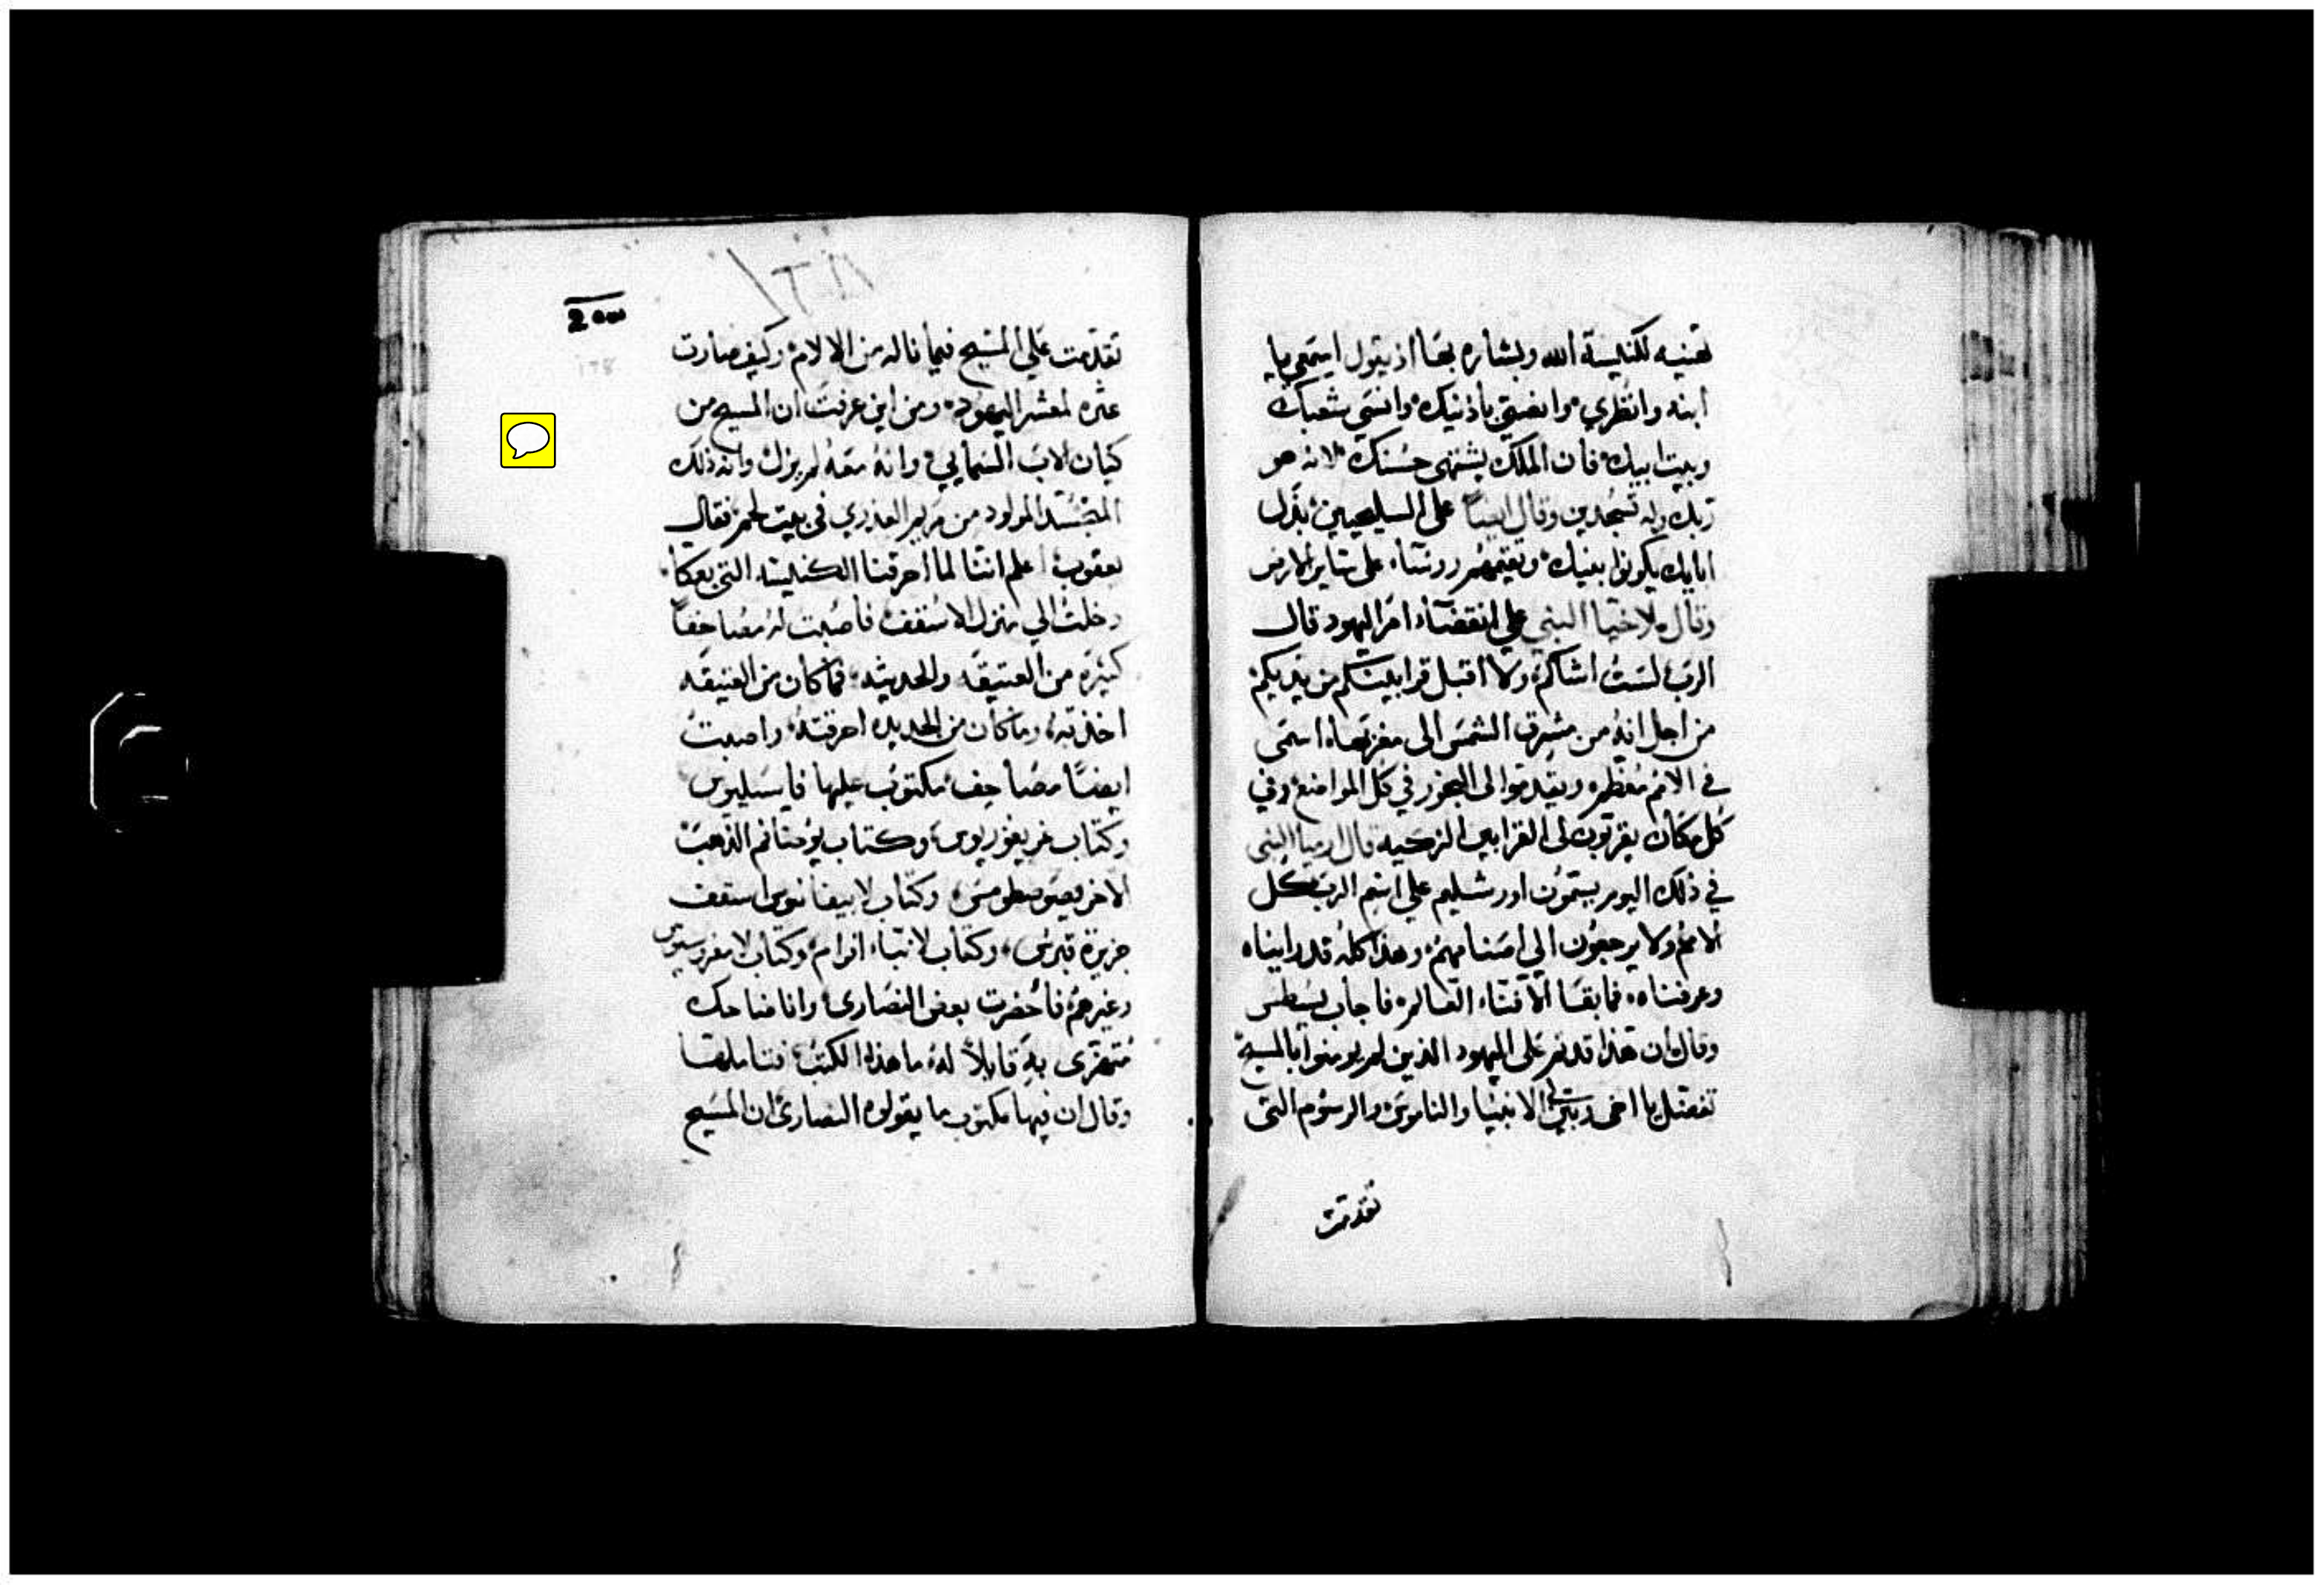 تهنيه لكنيسة الله وبشاره بها اذ يقول اسمعي يا
ابنه وانظري وانصتي باذنيك وانسي شعبك
وبيت ابيك فان الملك يشتهي حسنك لانه هو
ربك وله تسجدين وقال ايضًا على السليحيين بدل
ابايك يكونوا بنيك وتقيمهم روسًاء على ساير الارض
وقال ملاخيا النبي علي انقضاء امر اليهود قال
الرب لست اشاكم ولا اقبل قرابينكم من يديكم
من اجل انه من مشرق الشمس الى مغربها اسمى
في الامم معظم ويقدموا لى البخور في كل المواضع وفي
كل مكان يقربون لى القرابين الزكيه قال ارميا النبى
في ذلك اليوم يسمون اورشليم علي اسم الرب كل
الامم ولا يرجعون الي اصنامهم وهذا كله قد رايناه
وعرفناه فما بقا الا فناء العالم فاجاب يسطس
وقال ان هذا قد تم على اليهود الذين لم يومنوا بالمسيح
تفضل يا اخى وبين لى الانبيا والناموس والرسوم التى
تقدمت
2
تقدمت على المسيح فيما ناله من الالام وكيف صارت
عثره لمعشر اليهود ومن اين عرفت ان المسيح من
كيان الاب السمايي وانه معه لم يزل وانه ذلك
المولود من مريم العذري في بيت لحم فقال
يعقوب اعلم اننا لما احرقنا الكنيسه التى بعكا
دخلت الي منزل الاسقف فاصبت له مصاحفًا
كثيرة من العتيقه والحديثه فما كان من العتيقه
اخذته وما كان من الجديده احرقته واصبت
ايضًا مصاحف مكتوب عليها فاسيليوس
وكتاب غريغوريوس وكتاب يوحنا فم الذهب
الاخر يصوسطومس وكتاب لابيفانيوس اسقف
جزيرة قبرس وكتاب لانبا افرام وكتاب لامبروسيوس
وغيرهم فاحضرت بعض النصارى وانا ضاحك
متهزى به قايلاً له ما هذه الكتب فتاملها
وقال ان فيها مكتوب ما يقولوه النصارى ان المسيح